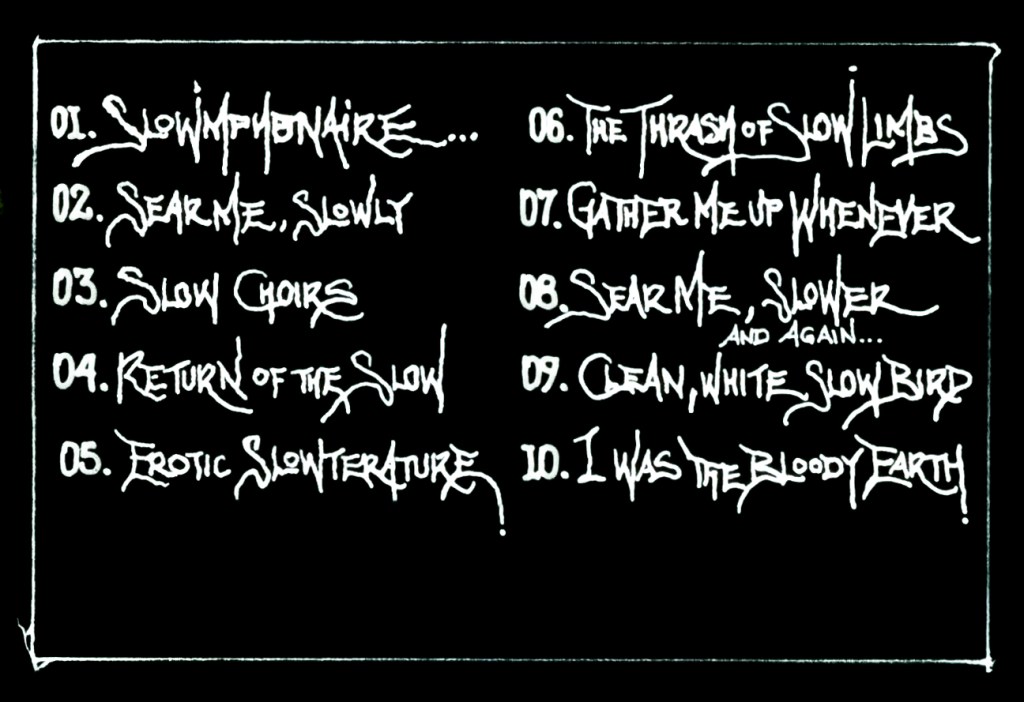 01. SLOWIMPHONAIRE...
02. SEAR ME, SLOWLY
03. SLOW CHOIRS
04. RETURN OF THE SLOW
05. EROTIC SLOWTERATURE
06. THE THRASH OF SLOW LIMBS
07. GATHER ME UP WHENEVER
08. SEAR ME, SLOWER
AND AGAIN...
09. CLEAN, WHITE SLOW BIRD
10. I WAS THE BLOODY EARTH